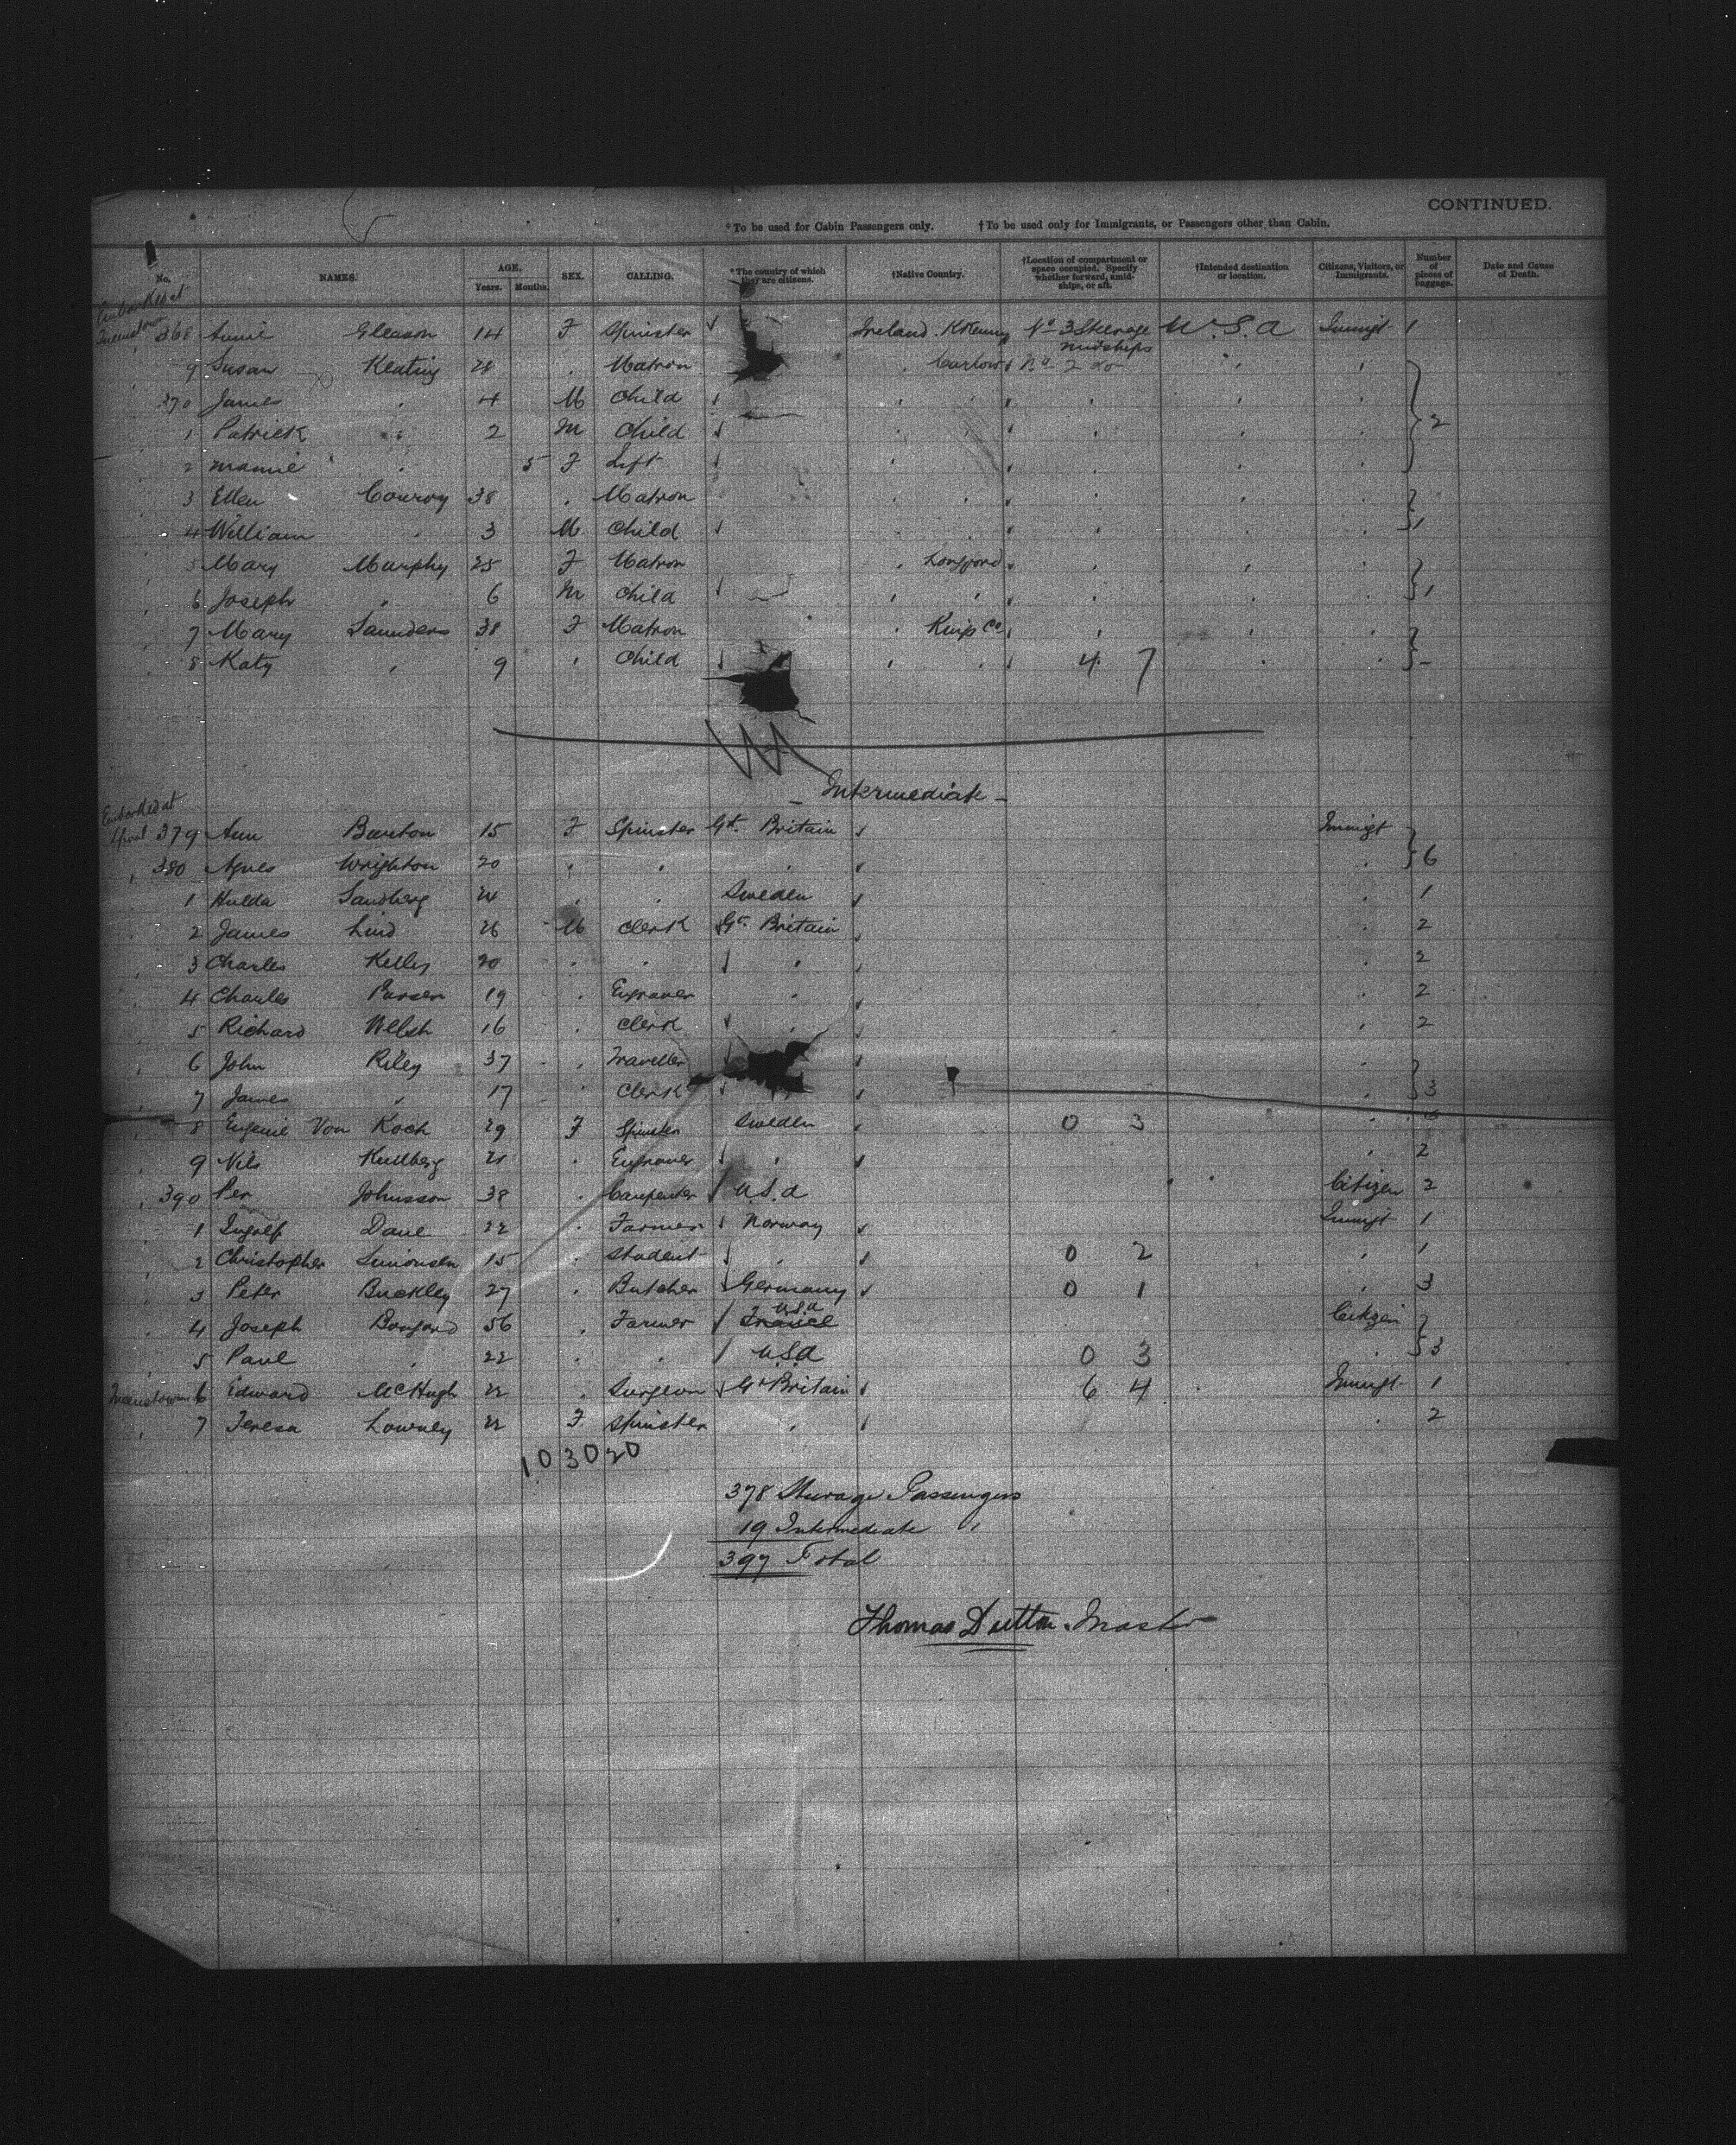 CONTINUED.
*To be used for Cabin Passengers only. †To be used only for Immigrants, or Passengers other than Cabin.
No. NAMES. AGE. Years. Months. SEX. CALLING. *The country of which they are citizens. †Native Country. †Location of compartment or space occupied. Specify whether forward, amidships, or aft. †Intended destination or location. Citizens, Visitors, or Immigrants. Number of pieces of baggage. Date and Cause of Death.
Embarked at
Queenstown 368 Annie Gleason 14 F Spinster Ireland. Kilkenny No 3 Steerage midships U.S.A Immigt 1
9 Susan Keating 28 " Matron " Carlow No 2 do " "
370 James " 4 M Child " " " " "
1 Patrick " 2 M Child " " " " " 2
2 Mamie " 5 F Inft " " " " "
3 Ellen Conroy 38 " Matron " " " " "
4 William " 3 M Child " " " " " 1
5 Mary Murphy 25 F Matron " Longford " " "
6 Joseph " 6 M Child " " " " " 1
7 Mary Saunders 38 F Matron " Kings Co " " "
8 Katy " 9 " Child " " 4 7 " " -
- Intermediate -
Embarked at
Lpool 379 Ann Burton 15 F Spinster Gt. Britain Immigt
" 380 Agnes Wrighton 20 " " " " 6
1 Hulda Sandberg 24 " " Sweden " 1
2 James Lind 26 M Clerk Gt. Britain " 2
3 Charles Kelly 20 " " " " 2
4 Charles 19 " Engraver " " 2
5 Richard Welsh 16 " Clerk " " 2
6 John Riley 37 " Traveller "
7 James " 17 " Clerk " 3
8 Eugenie Von Koch 29 F Spinster Sweden 0 3 "
9 Nils Kullberg 21 " Engraver " " 2
" 390 Per Johnsson 38 " Carpenter U.S.A Citizen 2
1 Ingolf Dane 22 " Farmer Norway Immigt 1
2 Christopher Simonsen 15 " Student " 0 2 " 1
3 Peter Buckley 27 " Butcher Germany 0 1 " 3
4 Joseph 56 " Farmer France U.S.A Citizen
5 Paul " 22 " " U.S.A 0 3 " 3
Queenstown 6 Edward McHugh 22 " Surgeon Gt Britain 6 4 Immigt 1
" 7 Teresa Lowney 22 F Spinster " " 2
103020
378 Steerage Passengers
19 Intermediate "
397 Total
Thomas Dutton. Master